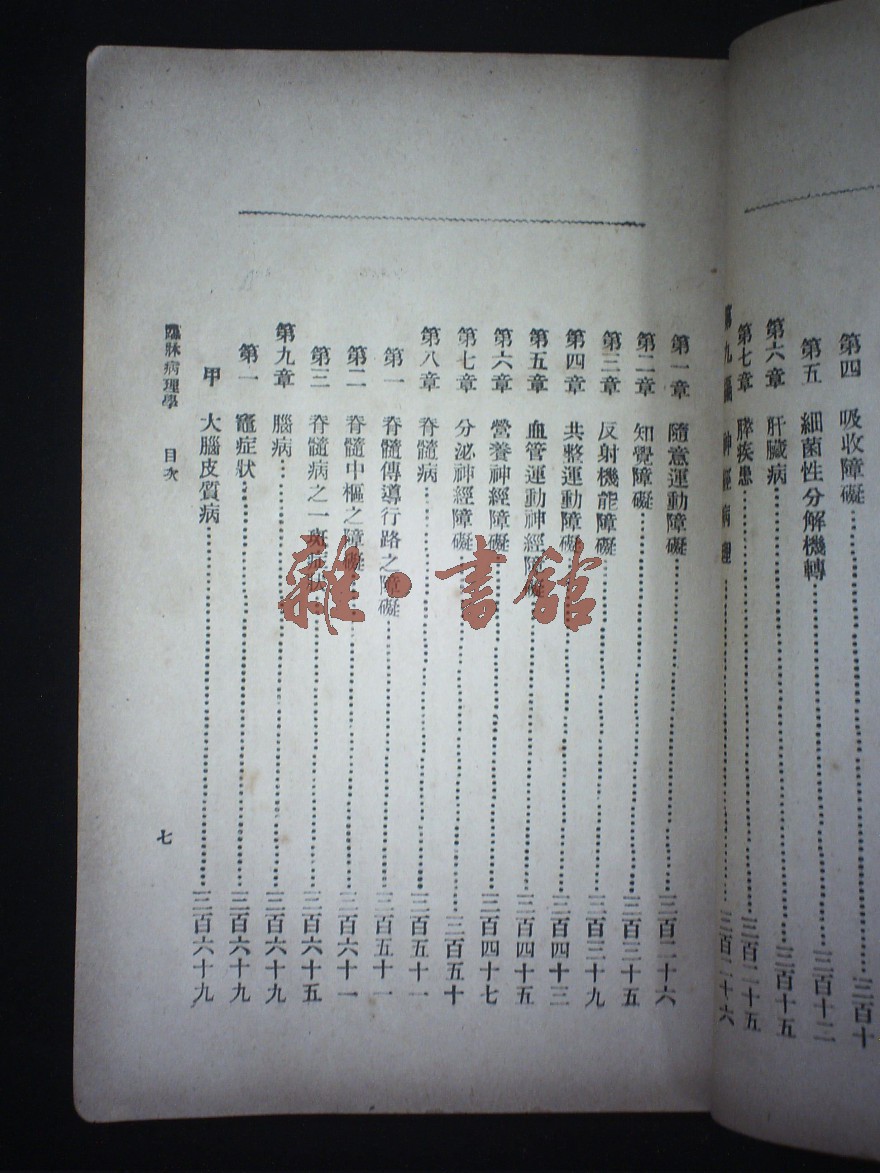 第四 吸收障礙……三百十
第五 細菌性分解機轉……三百十二
第六章 肝臟病……三百十五
第七章 膵疾患……三百二十五
第九編 神經病理……三百二十六
第一章 隨意運動障礙……三百二十六
第二章 知覺障礙……三百三十五
第三章 反射機能障礙……三百三十九
第四章 共整運動障礙……三百四十三
第五章 血管運動神經障礙……三百四十五
第六章 營養神經障礙……三百四十七
第七章 分泌神經障礙……三百五十
第八章 脊髓病……三百五十一
第一 脊髓傳導行路之障礙……三百五十一
第二 脊髓中樞之障礙……三百六十一
第三 脊髓病之一斑症狀……三百六十五
第九章 腦病……三百六十九
第一 竈症狀……三百六十九
甲 大腦皮質病……三百六十九
臨牀病理學 目次
七
雜·書館